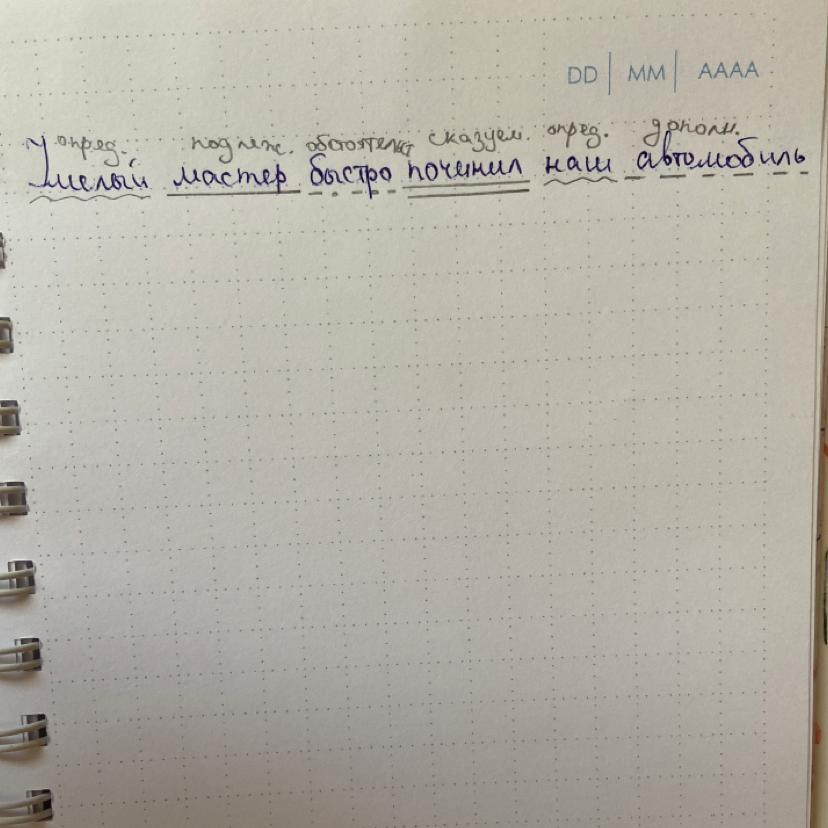 DD | MM | AAAA
опред. подлеж. обстоятельст сказуем. опред. дополн.
Умелый мастер быстро починил наш автомобиль